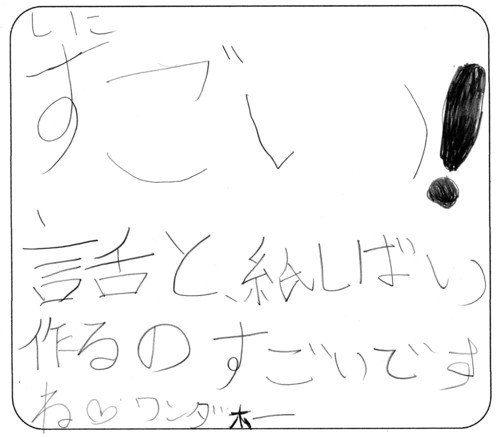 しに
すごい!
話と、紙しばい
作るのすごいです
ね♡ワンダホー